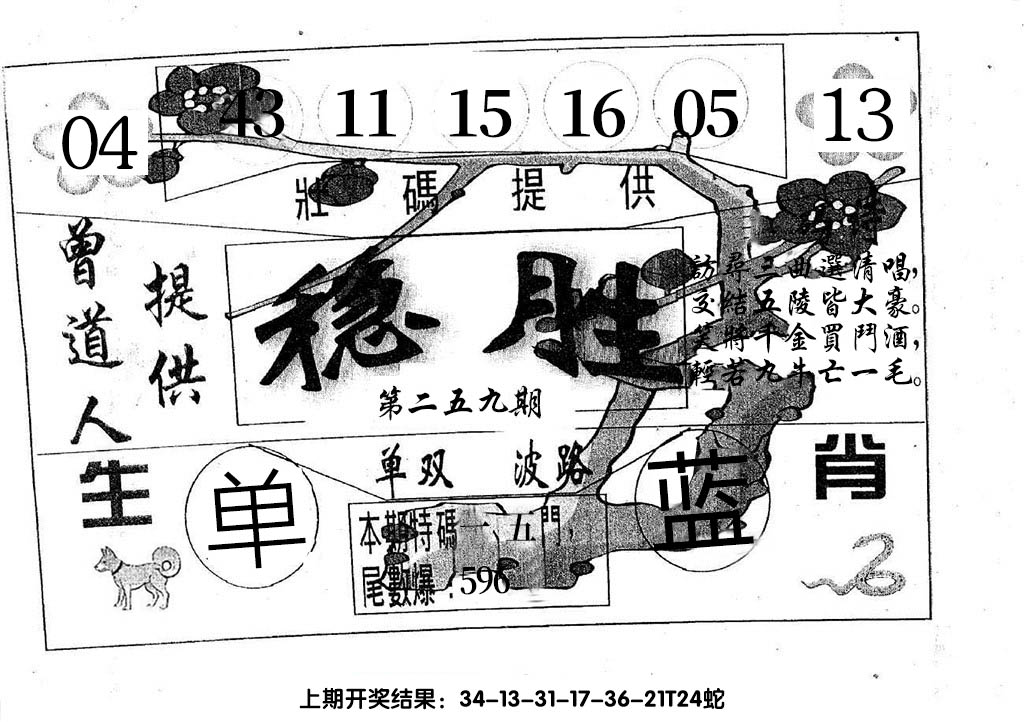 04 43 11 15 16 05 13
壯碼提供
曾道人
提供
稳胜
第二五九期
訪尋三曲選清唱,
交結五陵皆大豪。
笑將千金買鬥酒,
輕若九牛亡一毛。
单双 波路
生肖
单
蓝
本期特碼一、五門,
尾數爆:596
上期开奖结果：34-13-31-17-36-21T24蛇